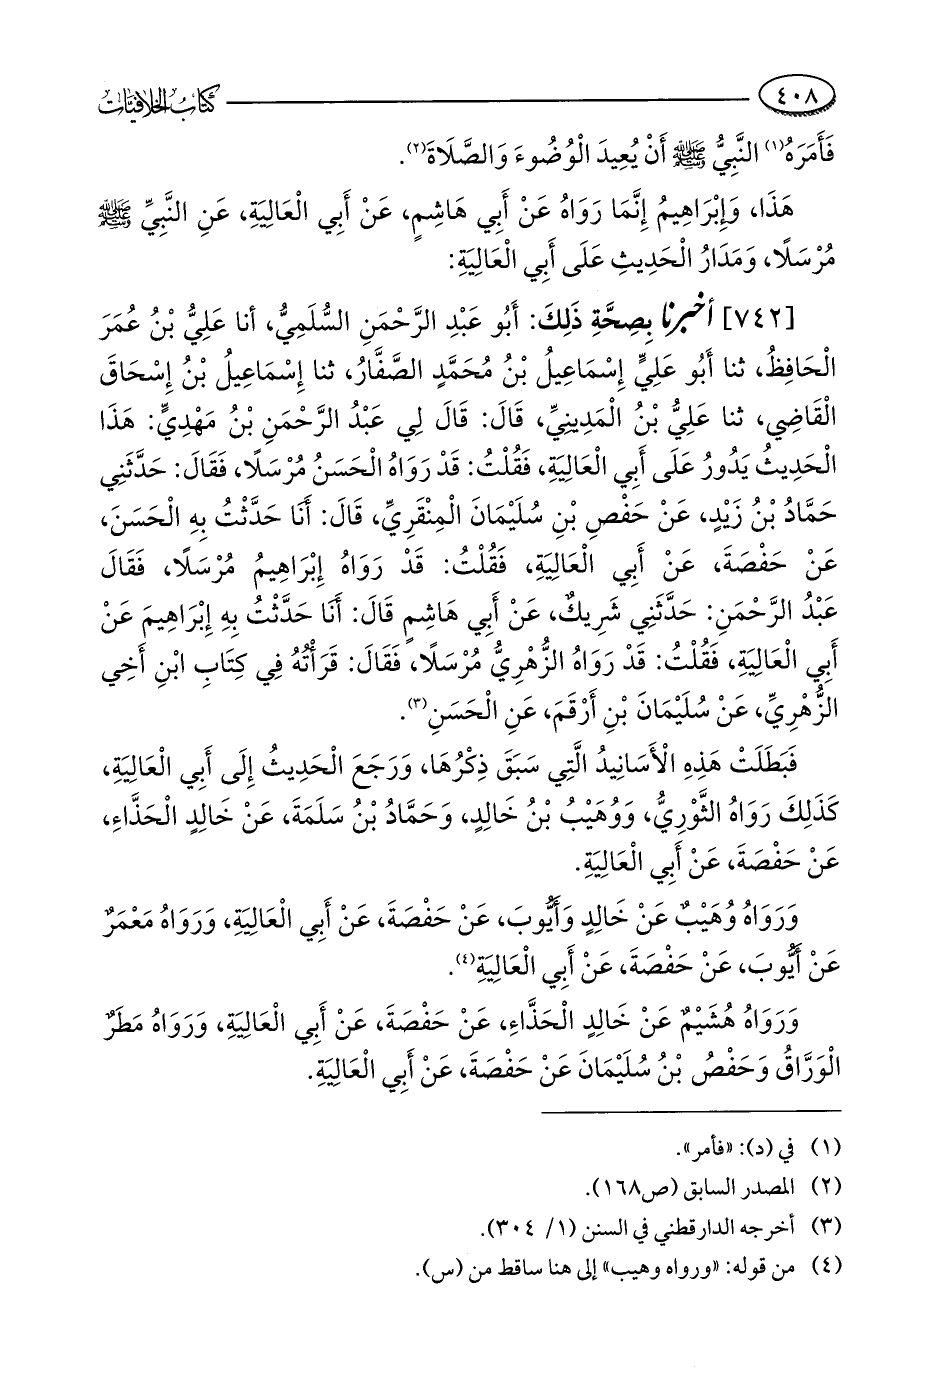 ٤٠٨ كتاب الخلافيات
فَأَمَرَهُ(١) النَّبِيُّ ﷺ أَنْ يُعِيدَ الْوُضُوءَ وَالصَّلَاةَ(٢).
هَذَا، وَإِبْرَاهِيمُ إِنَّمَا رَوَاهُ عَنْ أَبِي هَاشِمٍ، عَنْ أَبِي الْعَالِيَةِ، عَنِ النَّبِيِّ ﷺ
مُرْسَلًا، وَمَدَارُ الْحَدِيثِ عَلَى أَبِي الْعَالِيَةِ:
[٧٤٢] أخبرنا بِصِحَّةِ ذَلِكَ: أَبُو عَبْدِ الرَّحْمَنِ السُّلَمِيُّ، أنا عَلِيُّ بْنُ عُمَرَ
الْحَافِظُ، ثنا أَبُو عَلِيٍّ إِسْمَاعِيلُ بْنُ مُحَمَّدٍ الصَّفَّارُ، ثنا إِسْمَاعِيلُ بْنُ إِسْحَاقَ
الْقَاضِي، ثنا عَلِيُّ بْنُ الْمَدِينِيِّ، قَالَ: قَالَ لِي عَبْدُ الرَّحْمَنِ بْنُ مَهْدِيٍّ: هَذَا
الْحَدِيثُ يَدُورُ عَلَى أَبِي الْعَالِيَةِ، فَقُلْتُ: قَدْ رَوَاهُ الْحَسَنُ مُرْسَلًا، فَقَالَ: حَدَّثَنِي
حَمَّادُ بْنُ زَيْدٍ، عَنْ حَفْصِ بْنِ سُلَيْمَانَ الْمِنْقَرِيِّ، قَالَ: أَنَا حَدَّثْتُ بِهِ الْحَسَنَ،
عَنْ حَفْصَةَ، عَنْ أَبِي الْعَالِيَةِ، فَقُلْتُ: قَدْ رَوَاهُ إِبْرَاهِيمُ مُرْسَلًا، فَقَالَ
عَبْدُ الرَّحْمَنِ: حَدَّثَنِي شَرِيكٌ، عَنْ أَبِي هَاشِمٍ قَالَ: أَنَا حَدَّثْتُ بِهِ إِبْرَاهِيمَ عَنْ
أَبِي الْعَالِيَةِ، فَقُلْتُ: قَدْ رَوَاهُ الزُّهْرِيُّ مُرْسَلًا، فَقَالَ: قَرَأْتُهُ فِي كِتَابِ ابْنِ أَخِي
الزُّهْرِيِّ، عَنْ سُلَيْمَانَ بْنِ أَرْقَمَ، عَنِ الْحَسَنِ(٣).
فَبَطَلَتْ هَذِهِ الْأَسَانِيدُ الَّتِي سَبَقَ ذِكْرُهَا، وَرَجَعَ الْحَدِيثُ إِلَى أَبِي الْعَالِيَةِ،
كَذَلِكَ رَوَاهُ الثَّوْرِيُّ، وَوُهَيْبُ بْنُ خَالِدٍ، وَحَمَّادُ بْنُ سَلَمَةَ، عَنْ خَالِدٍ الْحَذَّاءِ،
عَنْ حَفْصَةَ، عَنْ أَبِي الْعَالِيَةِ.
وَرَوَاهُ وُهَيْبٌ عَنْ خَالِدٍ وَأَيُّوبَ، عَنْ حَفْصَةَ، عَنْ أَبِي الْعَالِيَةِ، وَرَوَاهُ مَعْمَرٌ
عَنْ أَيُّوبَ، عَنْ حَفْصَةَ، عَنْ أَبِي الْعَالِيَةِ(٤).
وَرَوَاهُ هُشَيْمٌ عَنْ خَالِدٍ الْحَذَّاءِ، عَنْ حَفْصَةَ، عَنْ أَبِي الْعَالِيَةِ، وَرَوَاهُ مَطَرٌ
الْوَرَّاقُ وَحَفْصُ بْنُ سُلَيْمَانَ عَنْ حَفْصَةَ، عَنْ أَبِي الْعَالِيَةِ.
(١) في (د): «فأمر».
(٢) المصدر السابق (ص١٦٨).
(٣) أخرجه الدارقطني في السنن (١/ ٣٠٤).
(٤) من قوله: «ورواه وهيب» إلى هنا ساقط من (س).